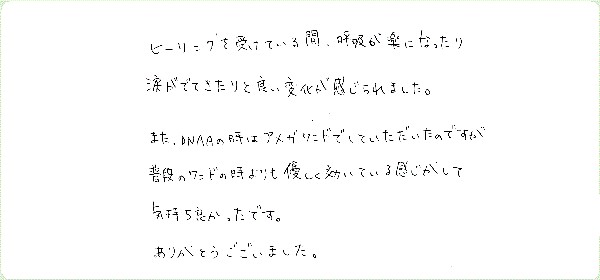 ヒーリングを受けている間、呼吸が楽になったり
涙がでてきたりと良い変化が感じられました。
また、DNAAの時はアメガワンドでしていただいたのですが
普段のワンドの時よりも優しく効いている感じがして
気持ち良かったです。
ありがとうございました。